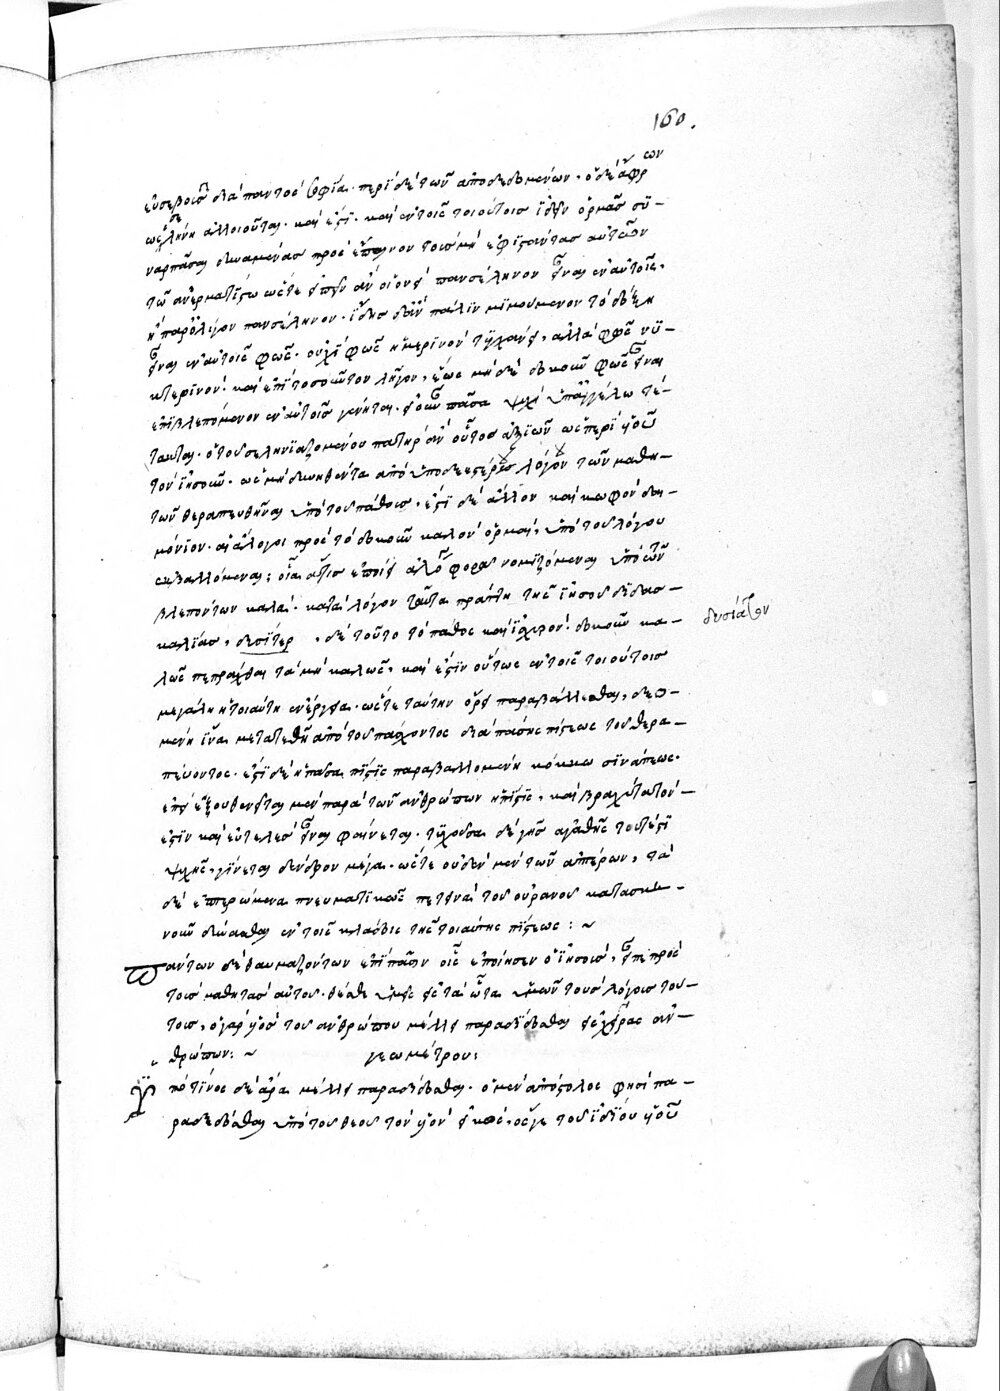 160.
εὐσεβοῦς διαπαντὸς σοφία. περὶ δὲ τῶν ἀποδεδομένων. ὁ δὲ ἄφρων
ὡς σελήνη ἀλλοιοῦται. καὶ ἔστι. καὶ ἐν τοῖς τοιούτοις ἰδεῖν ὁρμὰς συ-
ναρπάσαι δυναμένας πρὸς ἔπαινον τοὺς μὴ ἐφιστάντας αὐτῶν
τῷ ἀνερματίστῳ ὥστε εἰπεῖν ἂν οἱονεὶ πανσέληνον εἶναι ἐν αὐτοῖς,
ἢ παρ' ὀλίγον πανσέληνον. ἴδοις δ' ἂν πάλιν μειούμενον τὸ δοκοῦν
εἶναι ἐν αὐτοῖς φῶς. οὐχὶ φῶς ἡμερινὸν τυγχάνει, ἀλλὰ φῶς νυ-
κτερινὸν. καὶ ἐπὶ τοσοῦτον λῆγον, ἕως μηδὲ δοκοῦν φῶς εἶναι
ἐπιβλεπόμενον ἐν αὐτοῖς γένηται. ψυχὴ ὑπ' ἀγγέλῳ τέ-
τακται. ὁ τοῦ σεληνιαζομένου πατὴρ ἂν οὗτος ἀξιῶν ὡς περὶ υἱοῦ
τὸν ἰησοῦν. ὡς μὴ δυνηθέντα ἀπὸ ὑποδεεστέρου λόγου τῶν μαθη-
τῶν θεραπευθῆναι ὑπὸ τοῦ πάθους. ἔστι δὲ ἄλλον καὶ κωφὸν δαι-
μόνιον. αἱ ἄλογοι πρὸς τὸ δοκοῦν καλὸν ὁρμαὶ, ὑπὸ τοῦ λόγου
ἐκβαλλόμεναι; φορᾷ νομιζόμεναι ὑπὸ τῶν
βλεπόντων καλαὶ. κατὰ λόγον ταῦτα πράττῃ τῆς ἰησοῦ διδασ-
καλίας, δεσίτερ , δὲ τοῦτο τὸ πάθος καὶ ἰσχυρὸν. δοκοῦν κα- δυσίατον
λῶς πεπρᾶχθαι τὰ μὴ καλῶς, καὶ ἔστιν οὕτως ἐν τοῖς τοιούτοις
μεγάλη ἡ τοιαύτη ἐνέργεια. ὥστε ταύτην ὄρει παραβάλλεσθαι, δεο-
μένη ἵνα μετατεθῇ ἀπὸ τοῦ πάσχοντος διὰ πάσης πίστεως τοῦ θερα-
πεύοντος. ἔστι δὲ ἡ πᾶσα πίστις παραβαλλομένη κόκκῳ σινάπεως.
ἐπεὶ ἐξουθενεῖται μὲν παρὰ τῶν ἀνθρώπων ἡ πίστις, καὶ βραχύτατόν
ἐστιν καὶ εὐτελὲς εἶναι φαίνεται. τυχοῦσα δὲ γῆς ἀγαθῆς τουτέστι
ψυχῆς, γίνεται δένδρον μέγα. ὥστε οὐδὲν μὲν τῶν ἀπτέρων, τὰ
δὲ ἐπτερωμένα πνευματικῶς πετεινὰ τοῦ οὐρανοῦ κατασκη-
νοῦν δύνασθαι ἐν τοῖς κλάδοις τῆς τοιαύτης πίστεως: ~
Πάντων δὲ θαυμαζόντων ἐπὶ πᾶσιν οἷς ἐποίησεν ὁ ἰησοῦς, εἶπε πρὸς
τοὺς μαθητὰς αὐτοῦ. θέσθε ὑμεῖς εἰς τὰ ὦτα ὑμῶν τοὺς λόγους τού-
τους, ὁ γὰρ υἱὸς τοῦ ἀνθρώπου μέλλει παραδίδοσθαι εἰς χεῖρας ἀν-
θρώπων: ~ γεωμέτρου:
Ὑπὸ τίνος δὲ ἄρα μέλλει παραδίδοσθαι. ὁ μὲν ἀπόστολος φησὶ πα-
ραδεδόσθαι ὑπὸ τοῦ θεοῦ τὸν υἱὸν εἰκὸς, ὅς γε τοῦ ἰδίου υἱοῦ